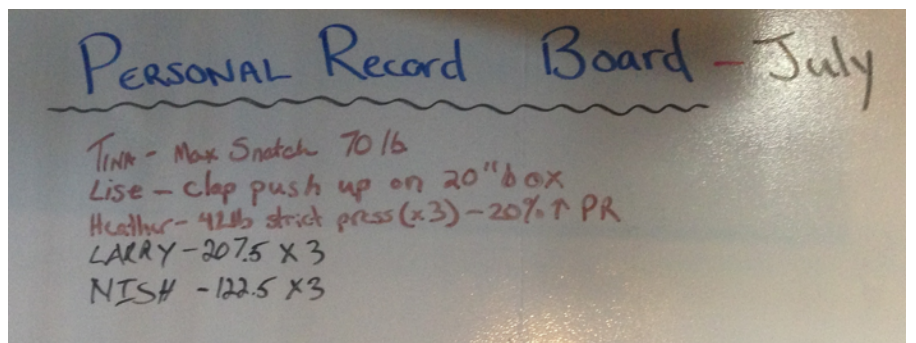 PERSONAL Record Board - July
TINA - Max Snatch 70 lb
Lise - Clap push up on 20" box
Heather - 42lb strict press (x3) - 20% ↑ PR
LARRY - 207.5 x 3
NISH - 122.5 x3